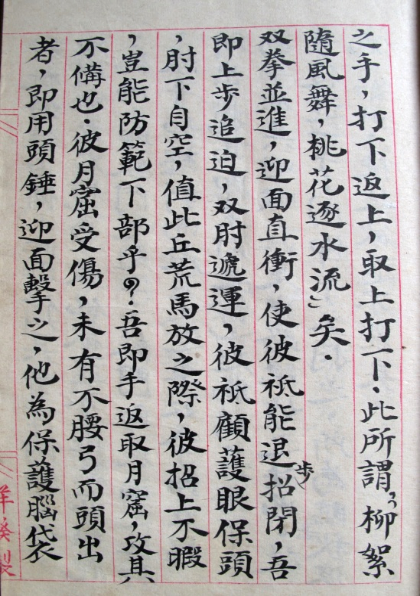 之手，打下返上，取上打下．此所謂「柳絮
隨風舞，桃花逐水流」矣．
双拳並進，迎面直衝，使彼祇能退步招閉，吾
即上步追迫，双肘遞運，彼祇顧護眼保頭
，肘下自空，值此丘荒馬放之際，彼招上不暇
，豈能防範下部乎？吾即手返取月窟，攻其
不備也．彼月窟受傷，未有不腰弓而頭出
者，即用頭錘，迎面擊之，他為保護腦袋